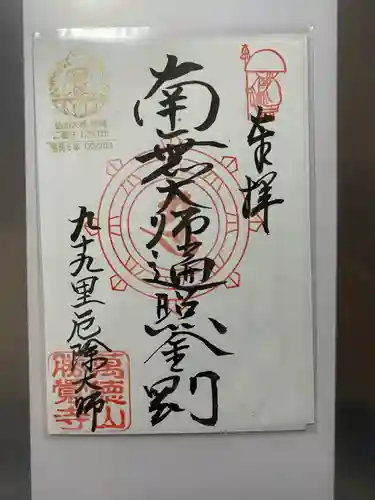 奉拝
南無大師遍照金剛
九十九里厄除大師
萬徳山
勝覚寺